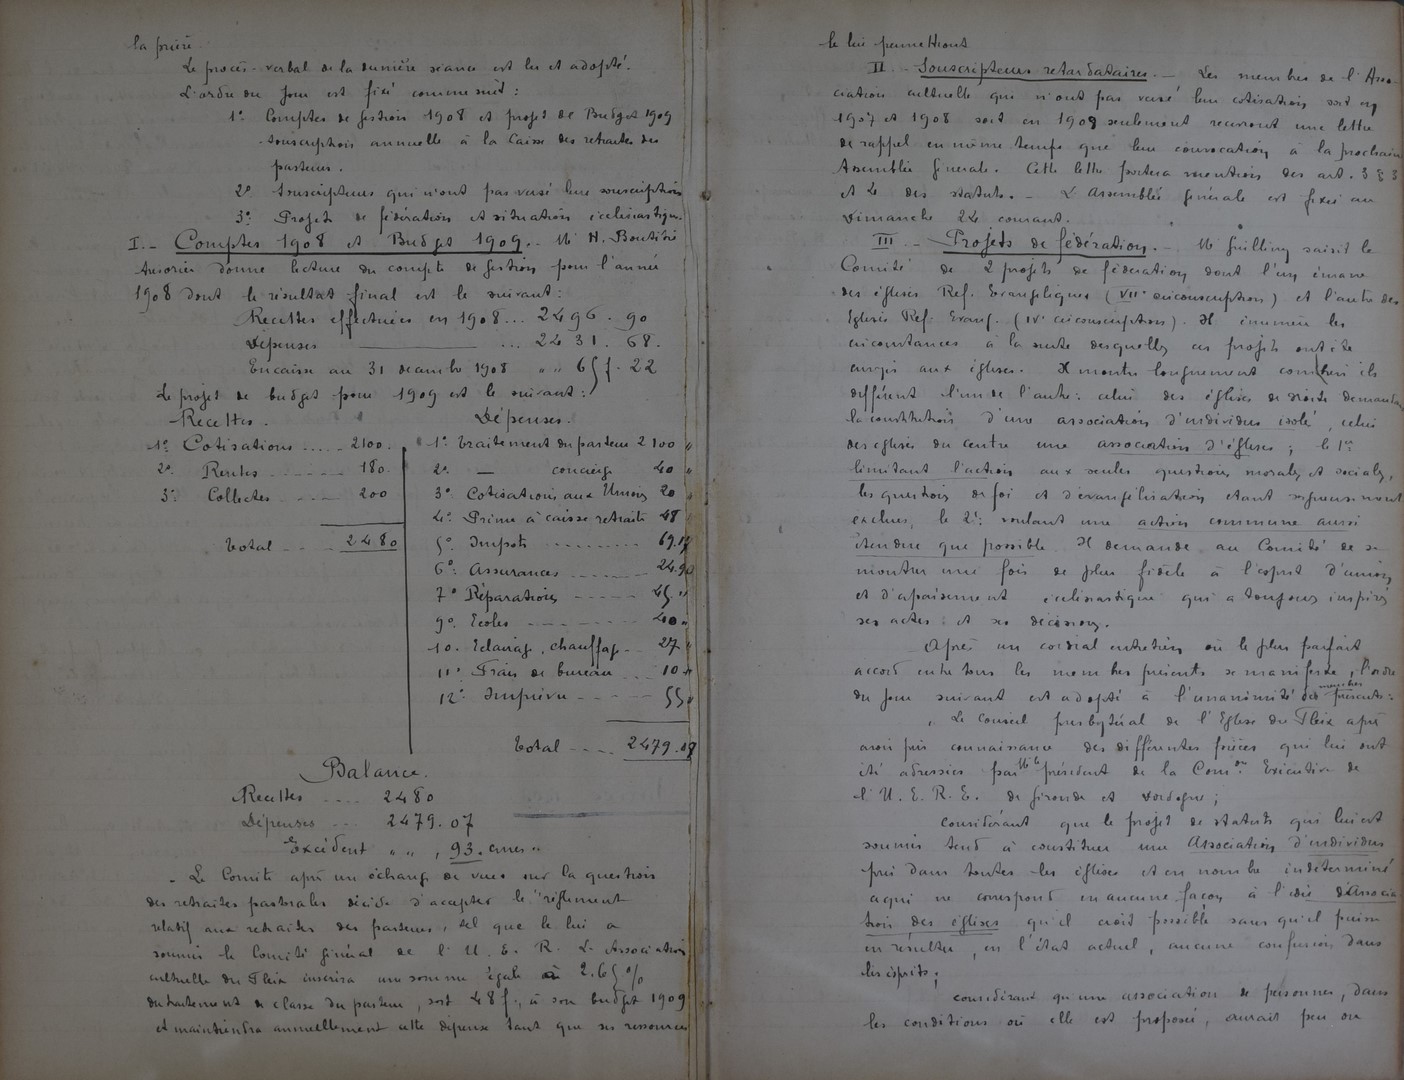 la prière.
Le procès-verbal de la dernière séance est lu et adopté.
L'ordre du jour est fixé comme suit :
1° Comptes de gestion 1908 et projet de Budget 1909
souscription annuelle à la Caisse des retraites des
pasteurs.
2° Souscripteurs qui n'ont pas versé leur souscription
3° Projets de fédération et situation ecclésiastique.
I. - Comptes 1908 et Budget 1909. - Mr H. Boutirie
trésorier donne lecture du compte de gestion pour l'année
1908 dont le résultat final est le suivant :
Recettes effectuées en 1908 ... 2496.90
Dépenses ... 2431.68.
Encaisse au 31 décembre 1908 " " 65f.22
Le projet de budget pour 1909 est le suivant :
Recettes.
1° Cotisations ..... 2100.
2° Rentes ..... 180.
3° Collectes ..... 200
Total .... 2480
Dépenses.
1° Traitement du pasteur 2100 "
2° — concierge 40 "
3° Cotisations aux Unions 20 "
4° Prime à caisse retraite 48 "
5° Impôts ......... 69.17
6° Assurances ....... 24.90
7° Réparations ..... 45 "
9° Ecoles ......... 40 "
10. Eclairage, chauffage .. 27 "
11° Frais de bureau ... 10 "
12° Imprévu ..... 55 "
Total .... 2479.07
Balance.
Recettes .... 2480
Dépenses ... 2479.07
Excédent " " , 93. cmes "
- Le Comité après un échange de vues sur la question
des retraites pastorales décide d'accepter le "réglement
relatif aux retraites des pasteurs, tel que le lui a
soumis le Comité général de l'U. E. R. L'Association
cultuelle du Fleix inscrira une somme égale à 2.65 %
du traitement de classe du pasteur, soit 48f., à son budget 1909
et maintiendra annuellement cette dépense tant que ses ressources
le lui permettront
II - Souscripteurs retardataires. - Les membres de l'Asso-
ciation cultuelle qui n'ont pas versé leur cotisation soit en
1907 et 1908 soit en 1908 seulement recevront une lettre
de rappel en même temps que leur convocation à la prochaine
Assemblée générale. Cette lettre portera mention des art. 3 § 3
et 4 des statuts. - L'Assemblée générale est fixée au
Dimanche 24 courant.
III. - Projets de fédération. - Mr Guilling saisit le
Comité de 2 projets de fédération dont l'un émane
des églises Ref. Evangéliques (VIIe circonscription) et l'autre des
Eglises Ref. Evang. (IVe circonscription). Il énumère les
circonstances à la suite desquelles ces projets ont été
envoyés aux églises. Il montre longuement combien ils
diffèrent l'un de l'autre : celui des églises de droite demandant
la constitution d'une association d'individus isolés, celui
des églises du centre une association d'églises ; le 1er
limitant l'action aux seules questions morales et sociales,
les questions de foi et d'évangélisation étant rigoureusement
exclues, le 2e: voulant une action commune aussi
étendue que possible. Il demande au Comité de se
montrer une fois de plus fidèle à l'esprit d'union
et d'apaisement ecclésiastique qui a toujours inspiré
ses actes et ses décisions.
Après un cordial entretien où le plus parfait
accord entre tous les membres présents se manifeste, l'ordre
du jour suivant est adopté à l'unanimité des membres présents :
" Le Conseil presbytéral de l'Eglise du Fleix après
avoir pris connaissance des différentes pièces qui lui ont
été adressées par Mr le président de la Comon Exécutive de
l'U. E. R. E. de Gironde et Dordogne ;
considérant que le projet de statuts qui lui est
soumis tend à constituer une Association d'individus
pris dans toutes les églises et en nombre indéterminé
ce qui ne correspond en aucune façon à l'idée d'Associa-
tion des églises qu'il croit possible sans qu'il puisse
en résulter, en l'état actuel, aucune confusion dans
les esprits ;
considérant qu'une association de personnes, dans
les conditions où elle est proposée, aurait peu ou